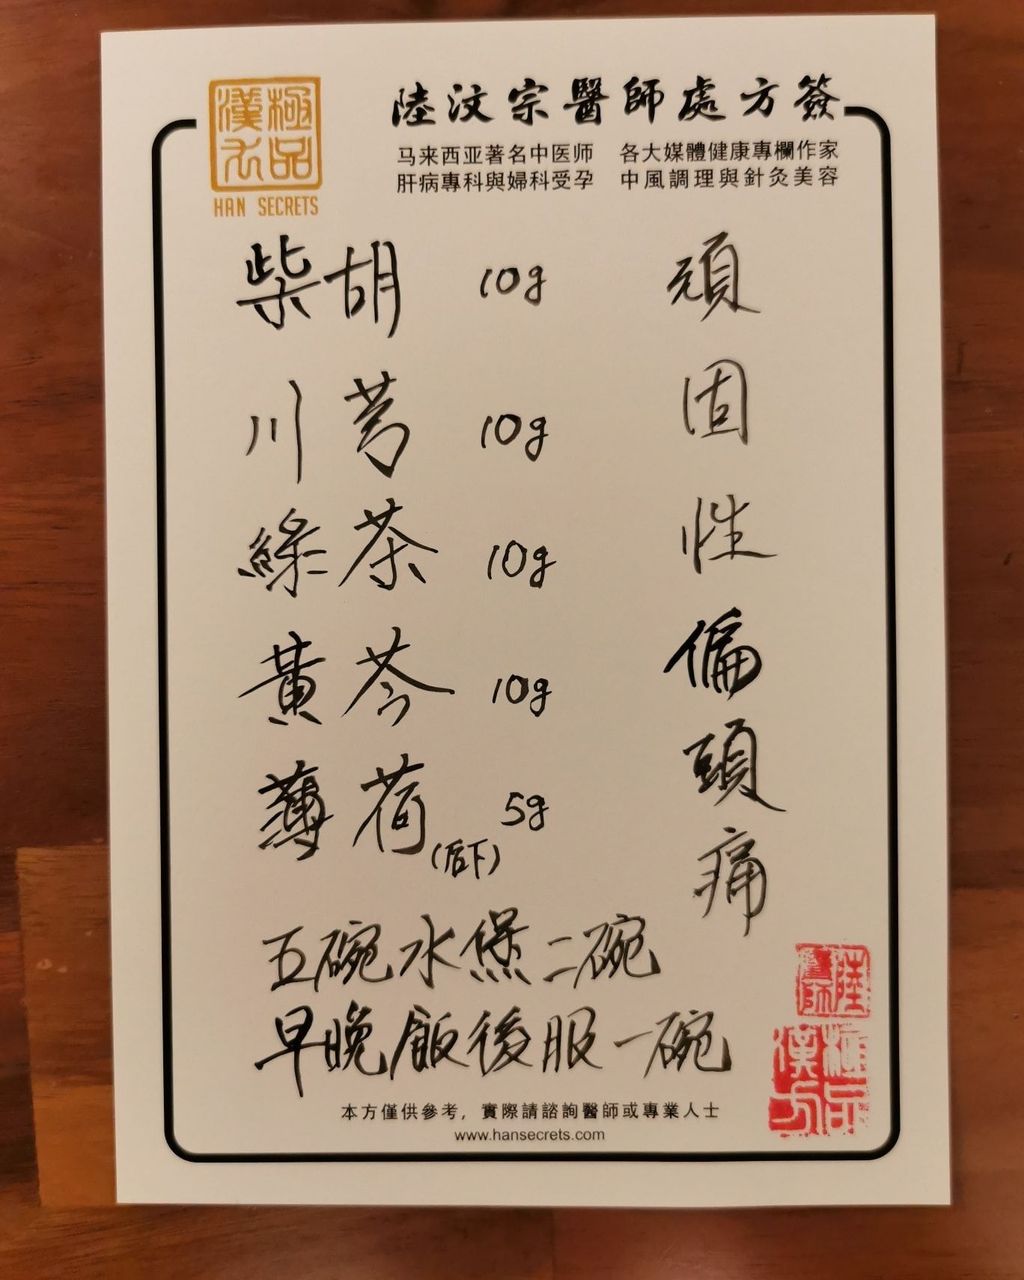 極品
漢方
HAN SECRETS
陸汶宗醫師處方簽
马来西亚著名中医师 各大媒體健康專欄作家
肝病專科與婦科受孕 中風調理與針灸美容
頑固性偏頭痛
柴胡 10g
川芎 10g
綠茶 10g
黃芩 10g
薄荷 5g
(后下)
五碗水煲二碗
早晚飯後服一碗
陸醫師
極品漢方
本方僅供參考，實際請諮詢醫師或專業人士
www.hansecrets.com